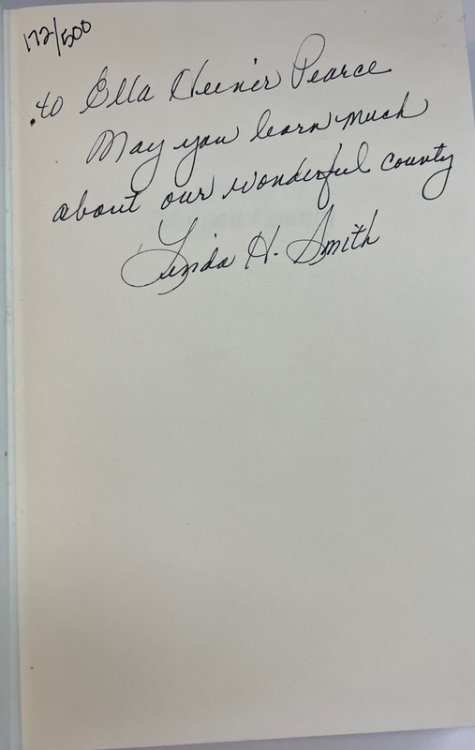 172/500
to Ella Heiner Pearce
May you learn much
about our wonderful county
Linda H. Smith